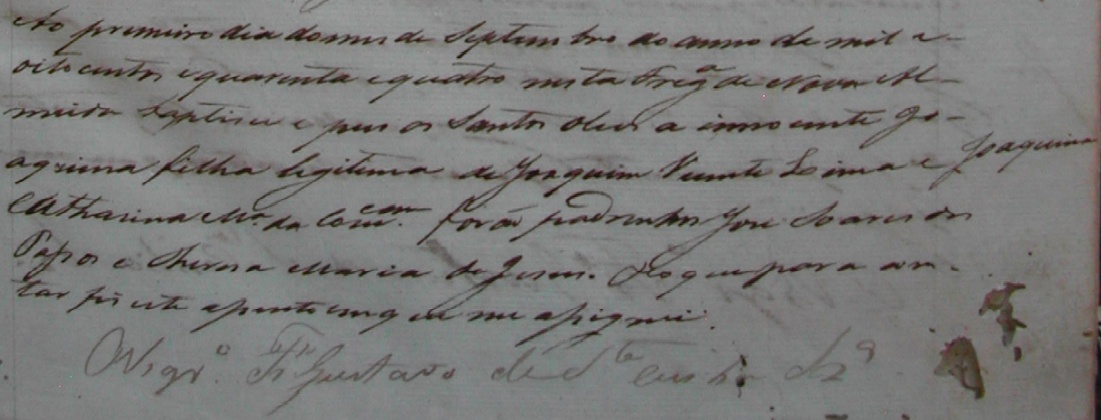 Ao primeiro dia do mes de Septembro do anno de mil e
oito centos e quarenta e quatro nesta Freg.ª de Nova Al-
meida baptisei e pus os Santos oleos a innocente Jo-
aquina filha legitima de Joaquim Vicente Lima e
Joaquina
Catharina M.ª da Conc.am forão padrinhos Jose Soares dos
Passos e Theresa Maria de Jesus. Do que para cons-
tar fis este acento em que me asignei.
Vigr.º Fr. Gustavo de S.ta